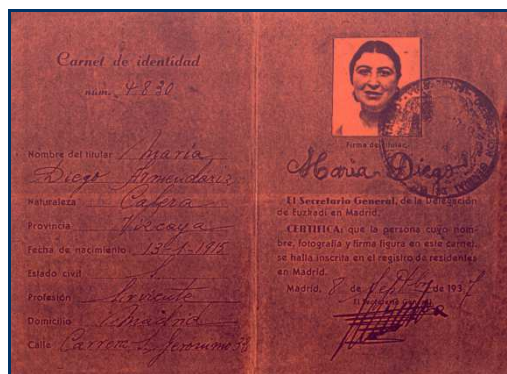 Carnet de identidad
núm. 4830
Nombre del titular María
Diego Armendariz
Naturaleza
Provincia Vizcaya
Fecha de nacimiento 13-1-1915
Estado civil S
Profesión Sirvienta
Domicilio Madrid
Calle Carrera S. Jeronimo 38
Firma del titular,
María Diego
El Secretario General, de la Delegación
de Euzkadi en Madrid.
CERTIFICA: que la persona cuyo nom-
bre, fotografía y firma figura en este carnet,
se halla inscrita en el registro de residentes
en Madrid.
Madrid, 8 de Septbre de 1937
El Secretario General